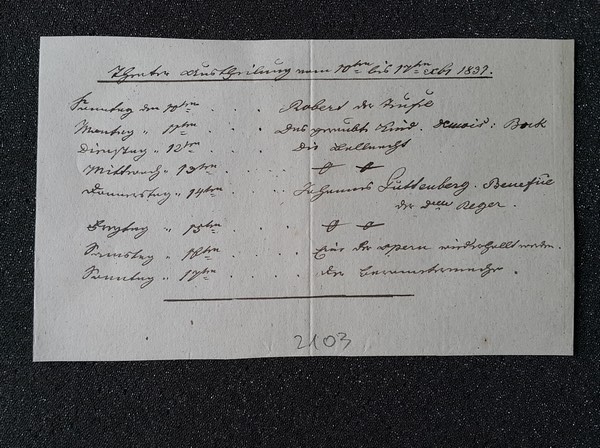 Theater Austheilung vom 10ten bis 17ten xbr 1837.
Sonntag den 10ten . . . Robert der Teufl
Montag " 11ten . . . Das geraubte Kind. Demois: Beck
Dienstag " 12ten . . . Die Ballnacht
Mittwoch " 13ten . . .
Donnerstag " 14ten . . . Johannes Guttenberg. Benefice
der Dem Reger.
Freytag " 15ten . . .
Samstag " 16ten . . . Eine der opern wiederhollt werden.
Sonntag " 17ten . . . der
2103